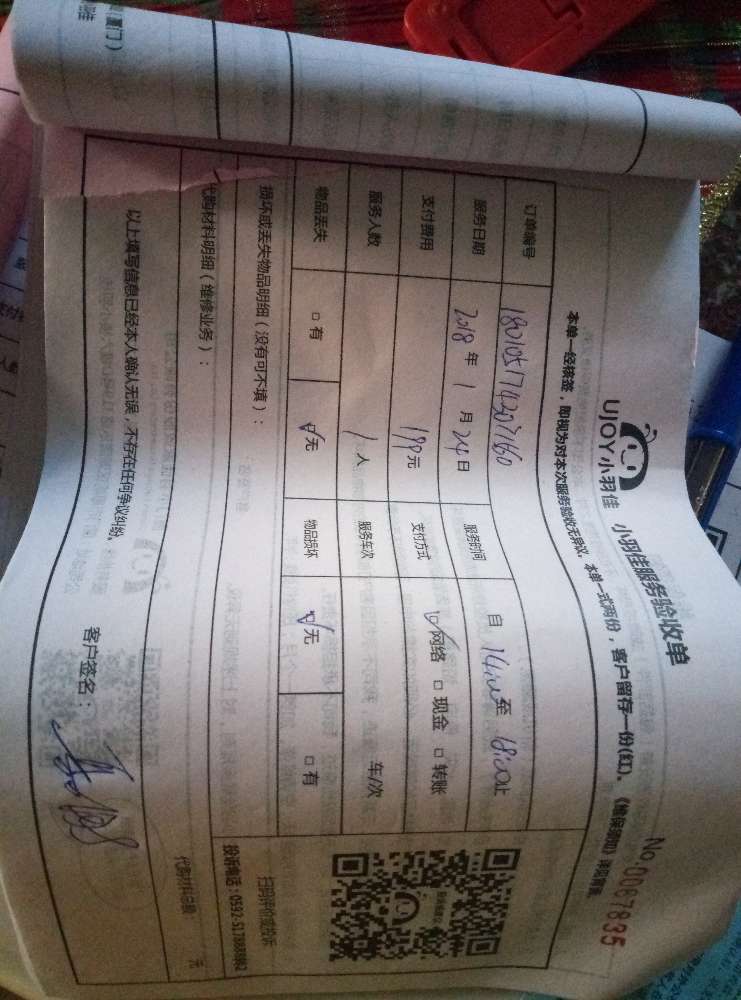 UJOY小羽佳 小羽佳服务验收单
No.0067835
本单一经核签，即视为对本次服务验收无异议。本单一式两份，客户留存一份(红)。
订单编号
服务日期 2018年1月24日 服务时间 自14:00至18:00止
支付费用 199元 支付方式 ☑网络 □现金 □转账
服务人数 1人 服务车次 车/次
物品丢失 □有 ☑无 物品损坏 ☑无 □有
损坏或丢失物品明细（没有可不填）：
代购材料明细（维修业务）：
代购材料总额 元
扫码评价或投诉
以上填写信息已经本人确认无误，不存在任何争议纠纷。
客户签名：